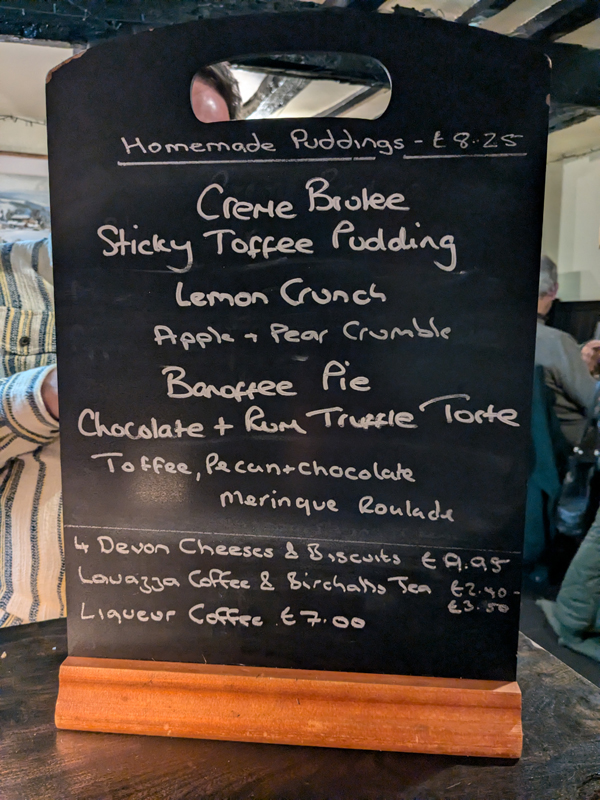 Homemade Puddings - £8.25
Creme Brulee
Sticky Toffee Pudding
Lemon Crunch
Apple + Pear Crumble
Banoffee Pie
Chocolate + Rum Truffle Torte
Toffee, Pecan + chocolate
Meringue Roulade
4 Devon Cheeses & Biscuits £9.95
Lavazza Coffee & Birchalls Tea £2.40 -
£3.50
Liqueur Coffee £7.00